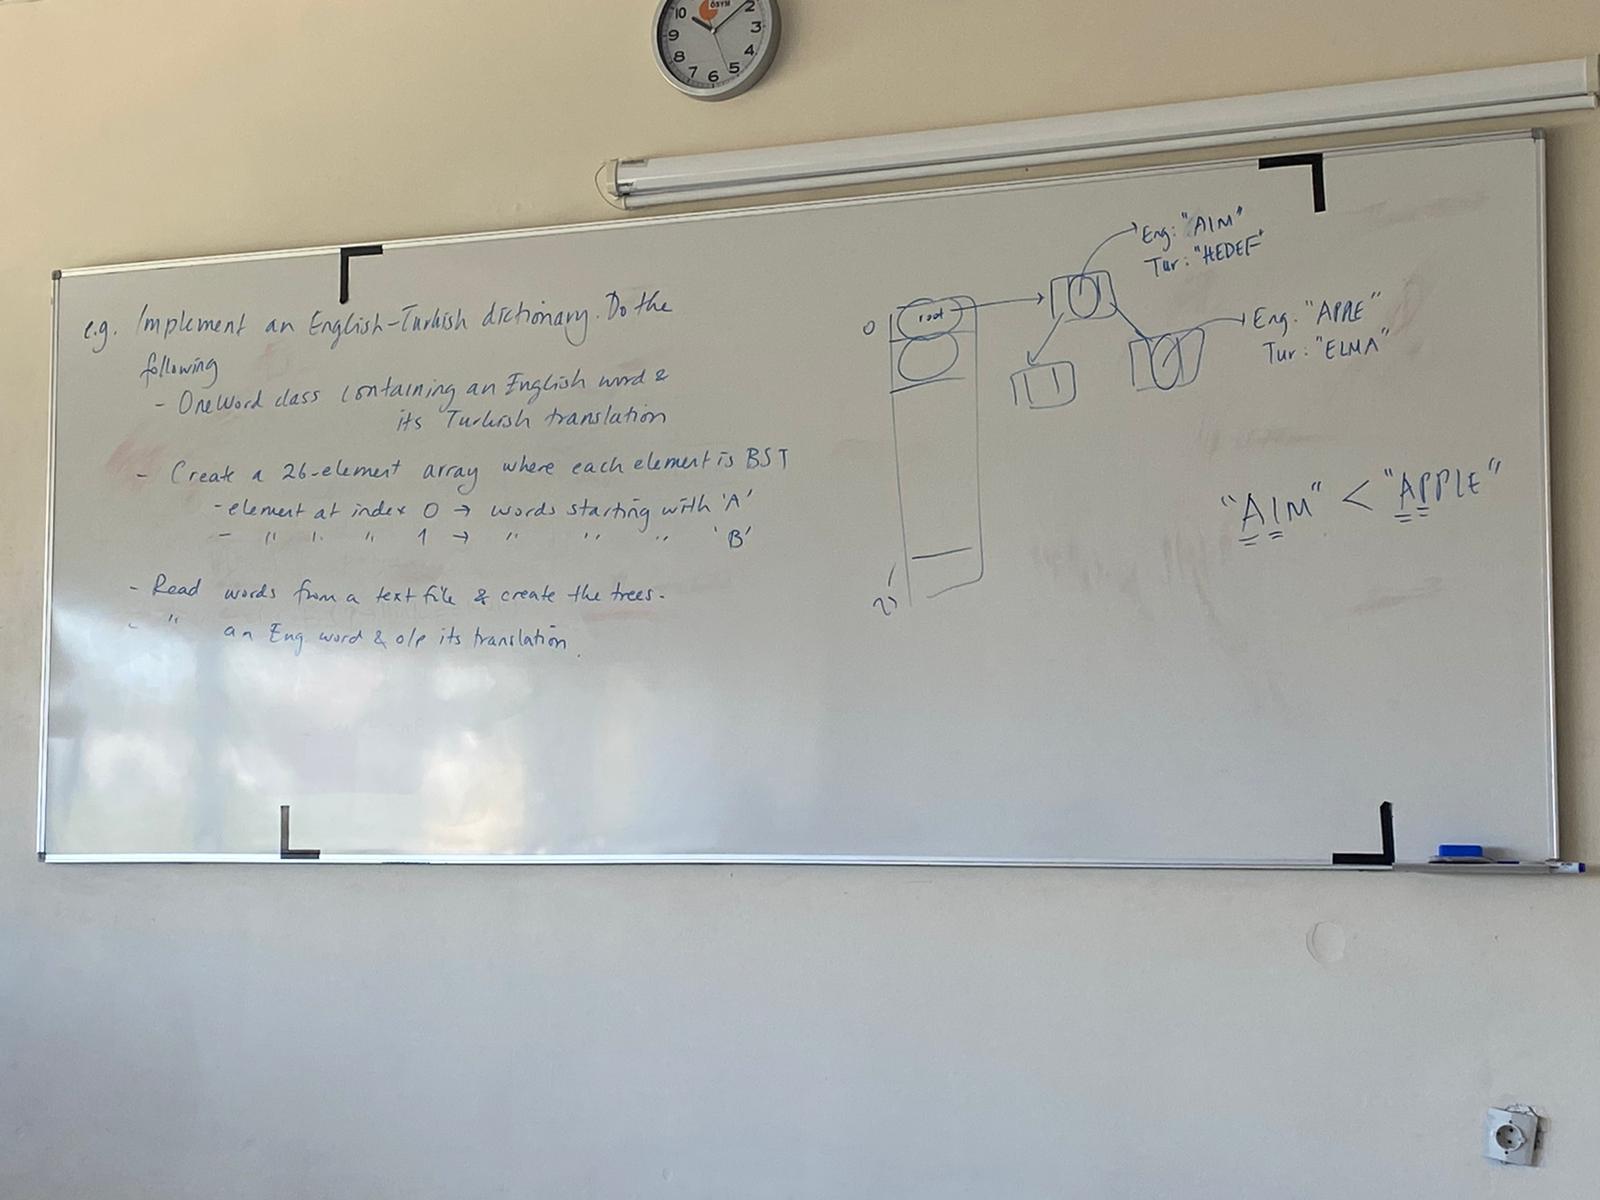 ÖSYM
10 2
9 3
8 4
7 6 5
e.g. Implement an English-Turkish dictionary. Do the
following
- OneWord class containing an English word &
its Turkish translation
- Create a 26-element array where each element is BST
- element at index 0 → words starting with 'A'
- " " " 1 → " " " 'B'
- Read words from a text file & create the trees.
- " an Eng word & o/p its translation.
0
root
Eng: "AIM"
Tur: "HEDEF"
Eng: "APPLE"
Tur: "ELMA"
"AIM" < "APPLE"